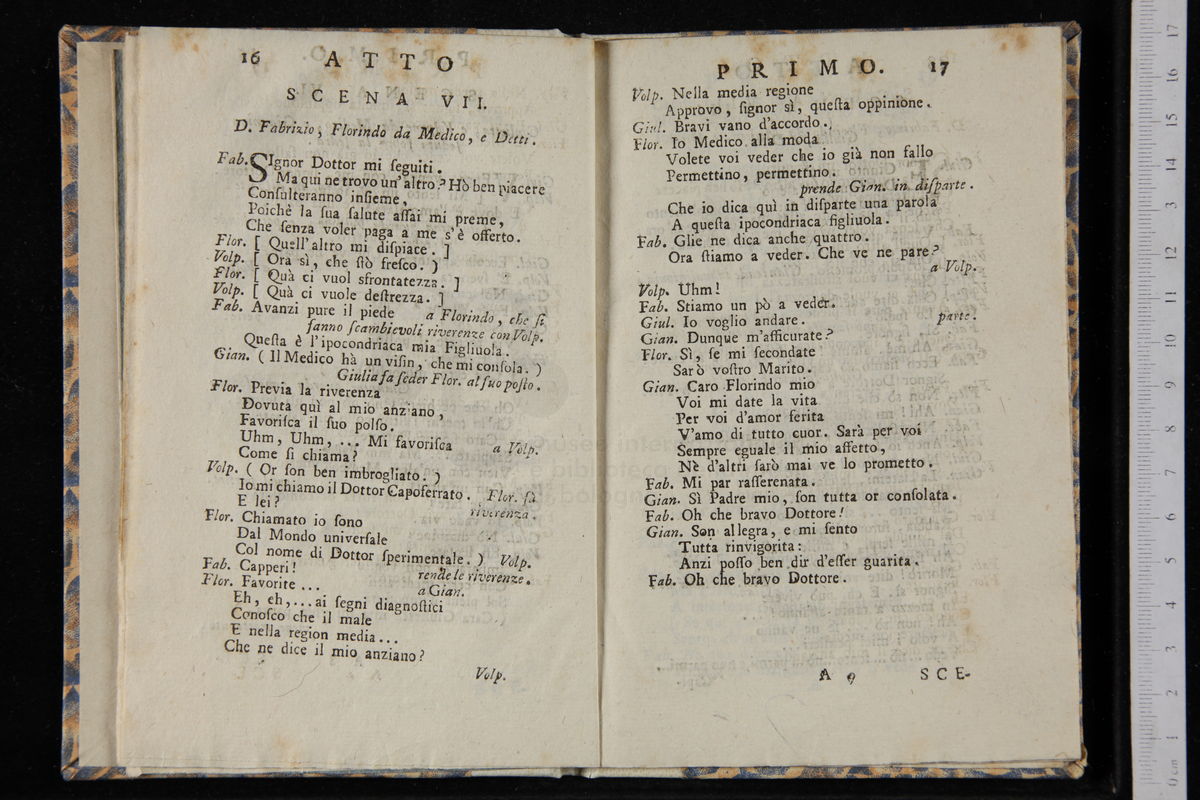 16 ATTO
SCENA VII.
D. Fabrizio, Florindo da Medico, e Detti.
Fab. SIgnor Dottor mi ſeguiti.
Ma qui ne trovo un'altro? Hò ben piacere
Conſulteranno inſieme,
Poichè la ſua ſalute aſſai mi preme,
Che ſenza voler paga a me s'è offerto.
Flor. [ Quell'altro mi diſpiace. ]
Volp. [ Ora sì, che ſtò freſco. )
Flor. [ Quà ci vuol sfrontatezza. ]
Volp. [ Quà ci vuole deſtrezza. ]
Fab. Avanzi pure il piede a Florindo, che ſi
fanno ſcambievoli riverenze con Volp.
Queſta è l'ipocondriaca mia Figliuola.
Gian. ( Il Medico hà un viſin, che mi conſola. )
Giulia fa ſeder Flor. al ſuo poſto.
Flor. Previa la riverenza
Dovuta quì al mio anziano,
Favoriſca il ſuo polſo.
Uhm, Uhm, ... Mi favoriſca a Volp.
Come ſi chiama?
Volp. ( Or ſon ben imbrogliato. )
Io mi chiamo il Dottor Capoferrato. Flor. fà
E lei? riverenza.
Flor. Chiamato io ſono
Dal Mondo univerſale
Col nome di Dottor ſperimentale. ) Volp.
Fab. Capperi! rende le riverenze.
Flor. Favorite ... a Gian.
Eh, eh, ... ai ſegni diagnoſtici
Conoſco che il male
E nella region media...
Che ne dice il mio anziano?
Volp.
PRIMO. 17
Volp. Nella media regione
Approvo, ſignor sì, queſta oppinione.
Giul. Bravi vano d'accordo.
Flor. Io Medico alla moda
Volete voi veder che io già non fallo
Permettino, permettino.
prende Gian. in diſparte.
Che io dica quì in diſparte una parola
A queſta ipocondriaca figliuola.
Fab. Glie ne dica anche quattro.
Ora ſtiamo a veder. Che ve ne pare?
a Volp.
Volp. Uhm!
Fab. Stiamo un pò a veder.
Giul. Io voglio andare. parte.
Gian. Dunque m'aſſicurate?
Flor. Sì, ſe mi ſecondate
Sarò voſtro Marito.
Gian. Caro Florindo mio
Voi mi date la vita
Per voi d'amor ferita
V'amo di tutto cuor. Sarà per voi
Sempre eguale il mio affetto,
Nè d'altri ſarò mai ve lo prometto.
Fab. Mi par raſſerenata.
Gian. Sì Padre mio, ſon tutta or conſolata.
Fab. Oh che bravo Dottore!
Gian. Son allegra, e mi ſento
Tutta rinvigorita:
Anzi poſſo ben dir d'eſſer guarita.
Fab. Oh che bravo Dottore.
A 9 SCE-